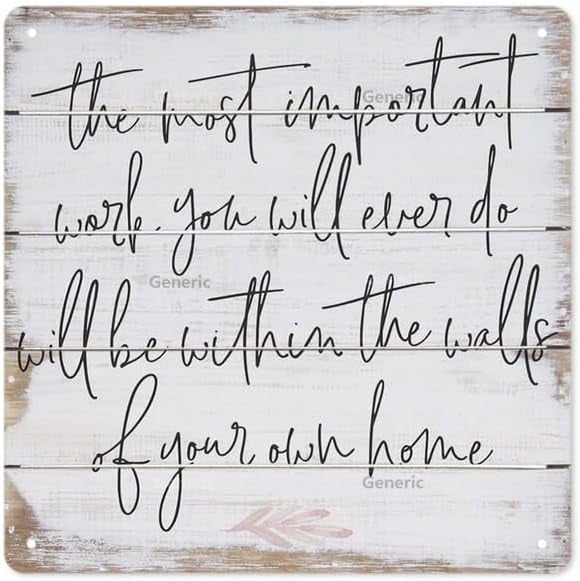 the most important
Generic
work you will ever do
Generic
will be within the walls
of your own home
Generic